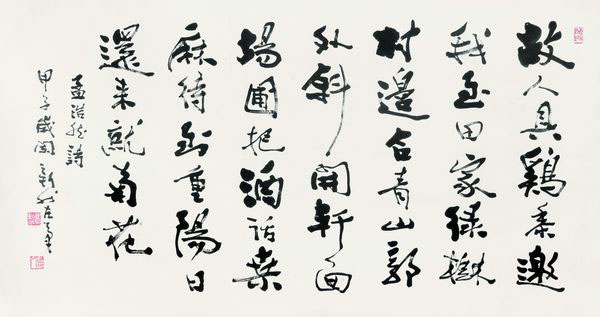 故人具鷄黍邀
我至田家綠樹
村邊合青山郭
外斜開軒面
場圃把酒話桑
麻待到重陽日
還來就菊花
孟浩然詩
甲子歲 新我左筆